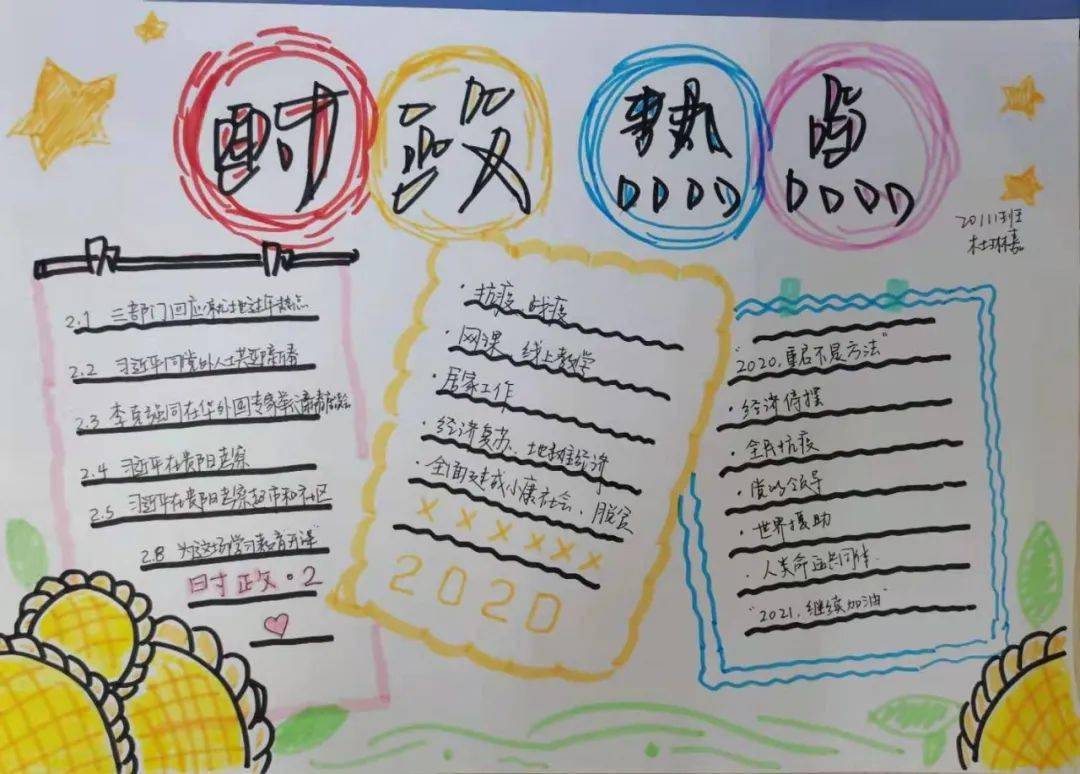 时政热点
2011班
杜琳嘉
2.1 三部门回应就地过年热点
2.2 习近平同党外人士共迎新春
2.3 李克强同在华外国专家举
2.4 习近平在贵阳考察
2.5 习近平在贵阳考察超市和社区
2.8 为这场学习教育开课
时政·2
·抗疫 战疫
·网课、线上教学
·居家工作
·经济复苏、地摊经济
·全面建成小康社会、脱贫
××××××
2020
"2020,重启不是方法"
·经济停摆
·全民抗疫
·党的领导
·世界援助
·人类命运共同体
"2021,继续加油"